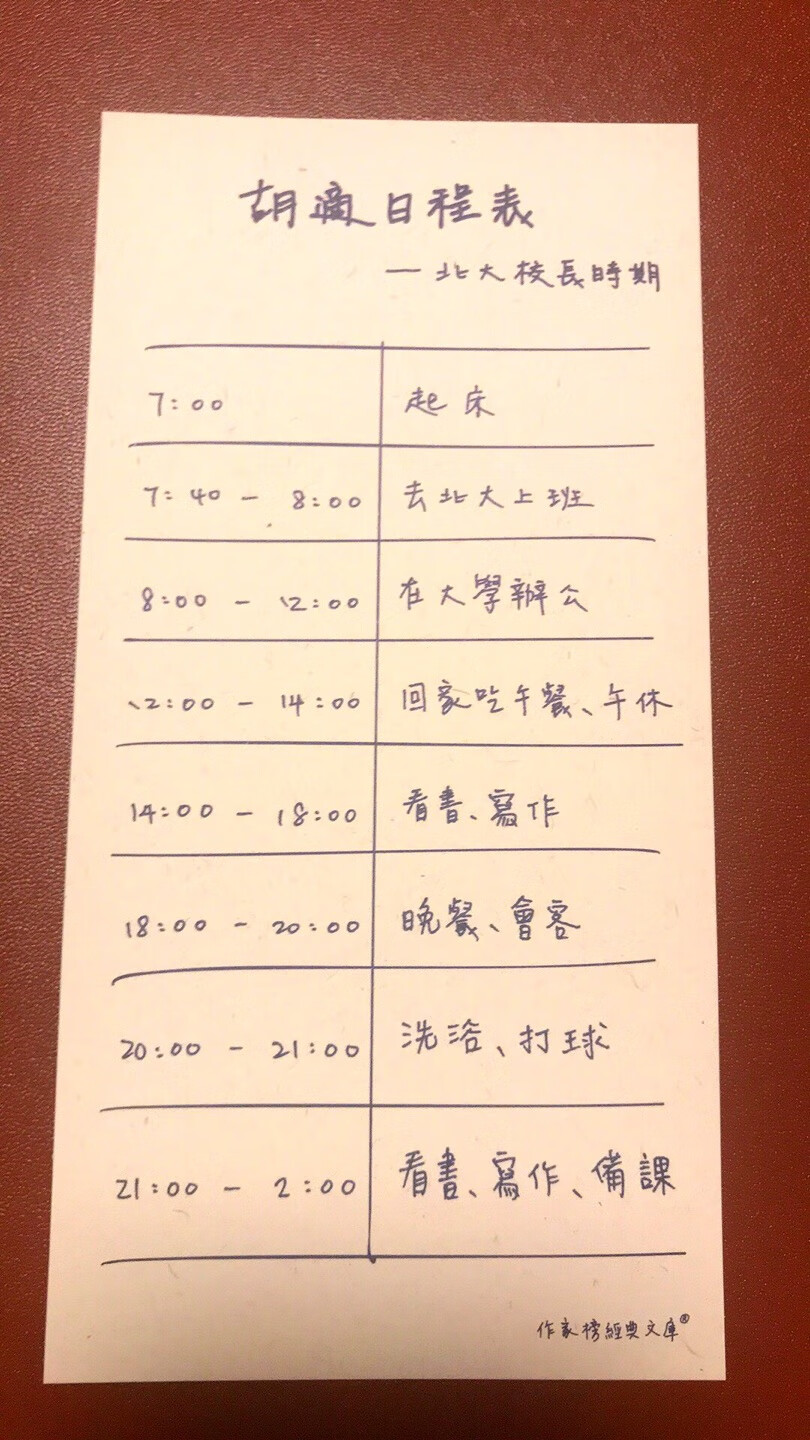 胡適日程表
—北大校長時期
7:00 起床
7:40 - 8:00 去北大上班
8:00 - 12:00 在大學辦公
12:00 - 14:00 回家吃午餐、午休
14:00 - 18:00 看書、寫作
18:00 - 20:00 晚餐、會客
20:00 - 21:00 洗浴、打球
21:00 - 2:00 看書、寫作、備課
作家榜經典文庫®